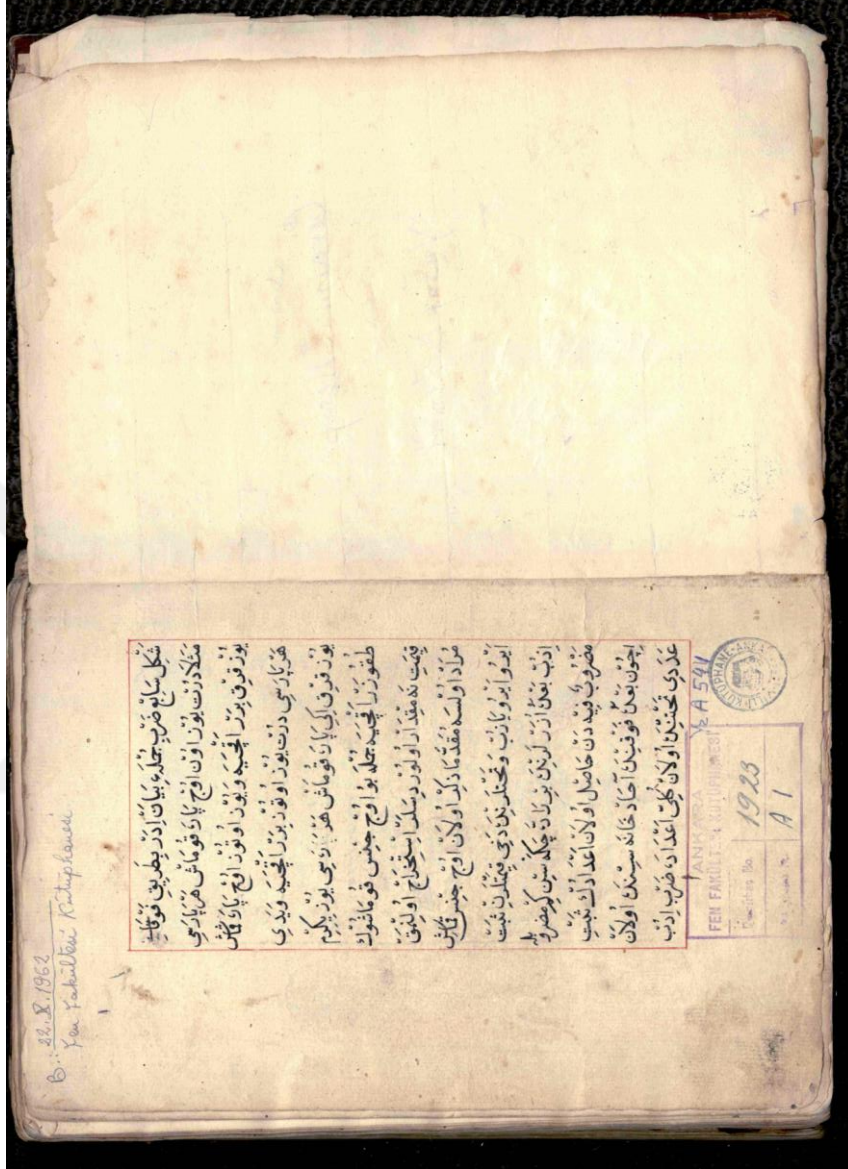 B.: 22.8.1962
Fen Fakültesi Kütüphanesi
شكل سابع ضرب جمله‌ء بيان ايدر بطريق فوقانى
مثلا درت يوز اون اوچ پاره قوماش هر پارەسى
يوز قرق بزر اقچيه و يوز اوتوز اوچ پاره قماش
هر پارەسى درت يوز اوتوز بزر اقچيه و يدى
يوز قرق ايكى پاره قوماش هر پارەسى يوز يكرم
طقوزر اقچيه جمله بو اوچ جنس قوماشوك
قيمتى نه مقدار اولور ديسلر استخراج اولنمق
مراد اولنسه مقدما ذكر اولان اوچ جنس قماش
ايرو ايرو يازب و تحتلرينه دخى قيمتلرين ثبت
ايدب بعده اوزرلرينه بر ياره چكه سين كه مضروب
مضروب فيه دن حاصل اولان اعدادك ثبتى
ايچون بعده فوقينك آحاد خانه سنده اولان
عددى تحتنده اولان كلى اعداده ضرب ايدب
YzA 544
ANKARA
FEN FAKÜLTESİ KÜTÜPHANESİ
Demirbaş No. 1923
A 1